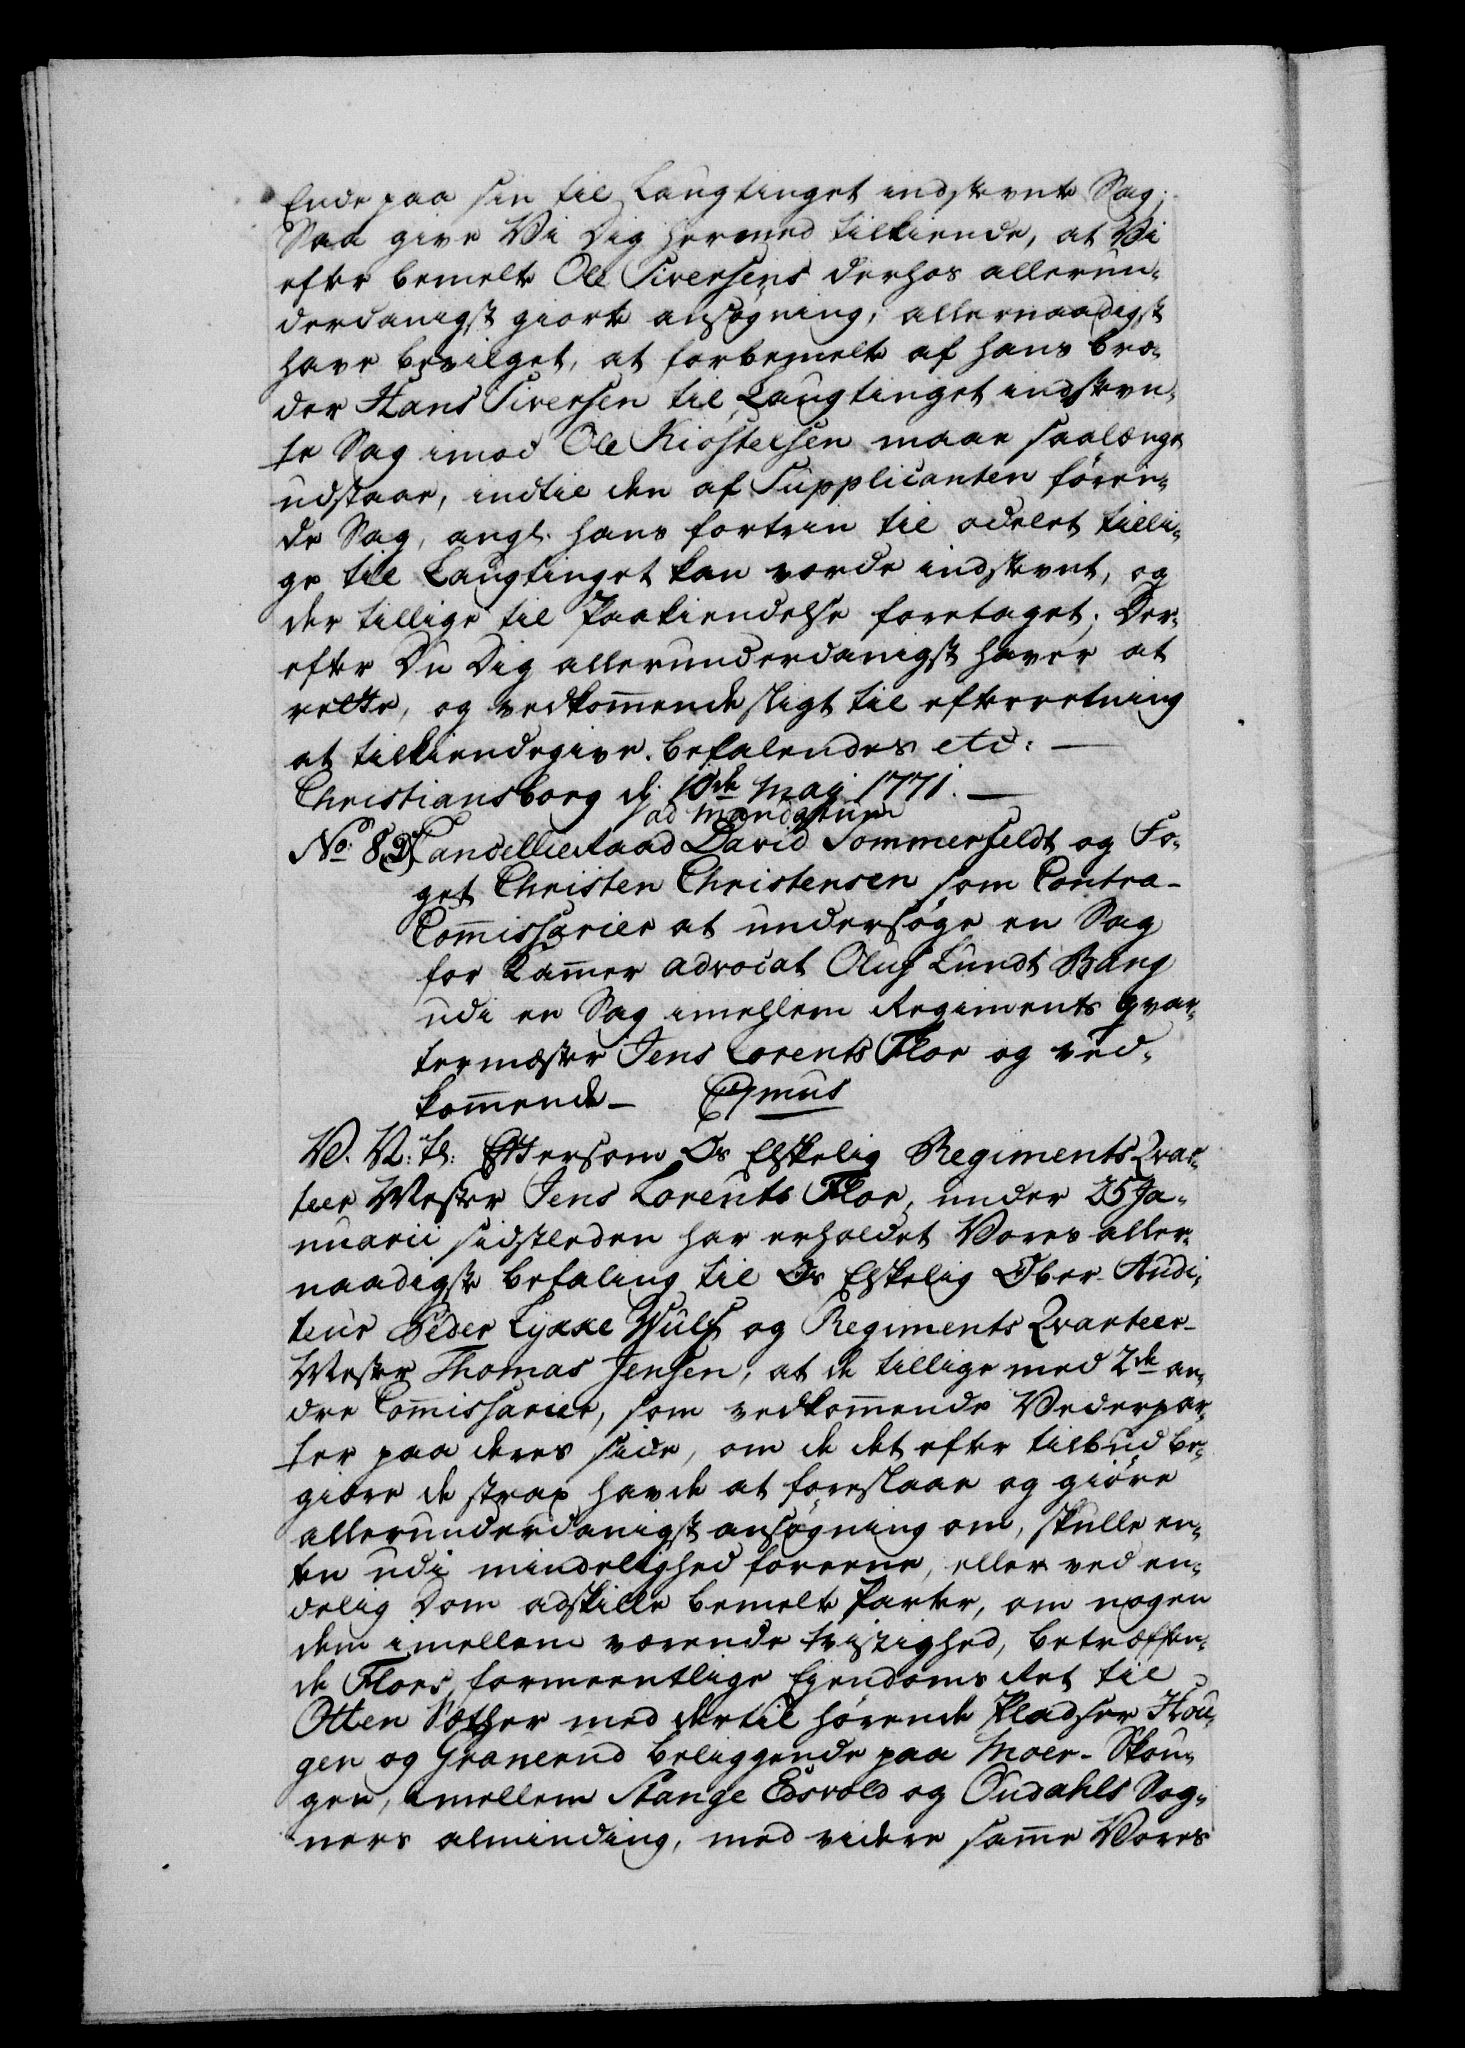 Ende paa sin til Laugtinget indstevnte Sag;
Saa give Vi Dig hermed tilkiende, at Vi
efter bemelte Ole Siversens derhos allerun-
derdanigst giorte ansøgning, allernaadigst
have bevilget, at forbemelte af hans bro-
der Hans Siversen til Laugtinget indstevn-
te Sag imod Ole Kiostelsen maae saalænge
udstaae, indtil den af Supplicanten føren-
de Sag, angl. hans fortrin til odelet tilli-
ge til Laugtinget kan vorde indstevnt, og
der tillige til Paakiendelse foretaget; Der-
efter Du Dig allerunderdanigst haver at
rette, og vedkom̄ende sligt til efterretning
at tilkiendegive. befalendes etc: —
Christiansborg d: 10de Maj 1771. —
ad mandatum
No: 82. Cancellieraad David Sommerfeldt og Fo-
get Christen Christensen som Contra-
Com̄issarier at undersøge en Sag
for Kam̄er advocat Oluf Lundt Bang
udi en Sag imellem Regiments qvar-
termester Jens Lorents Flor og ved-
kom̄ende —
V. V: tl: Eftersom Os Elskelig Regiments Qvar-
teer Mester Jens Lorents Flor, under 25 Ja-
nuarii sidstleden har erholdet Vores aller-
naadigste befaling til Os Elskelig Ober-Audi-
teur Peder Lykke Wulf og Regiments Qvarteer-
Mester Thomas Jensen, at de tillige med 2de an-
dre Com̄issarier, som vedkom̄ende Vederpar-
ter paa deres side, om de det efter tilbud be-
giære de strax havde at foreslaae og giøre
allerunderdanigst ansøgning om, skulle en-
ten udi mindelighed foreene, eller ved en-
delig Dom adskille bemelte Parter, om nogen
dem imellem værende tvistighed, betræffen-
de Flors formeentlige Ejendoms Ret til
Otten Sæther med dertil hørende Pladser Hou-
gen og Granerud beliggende paa Moer-Skou-
gen, imellem Stange Edsvold og Oudahls Sog-
ners alminding, med videre sam̄e Vores